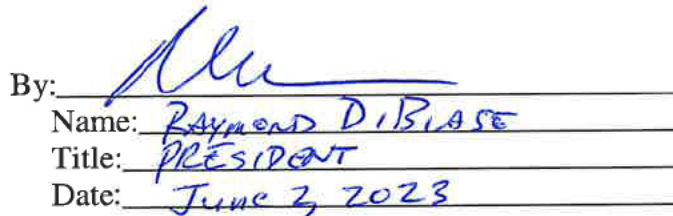 By:
Name: RAYMOND DIBIASE
Title: PRESIDENT
Date: June 2, 2023